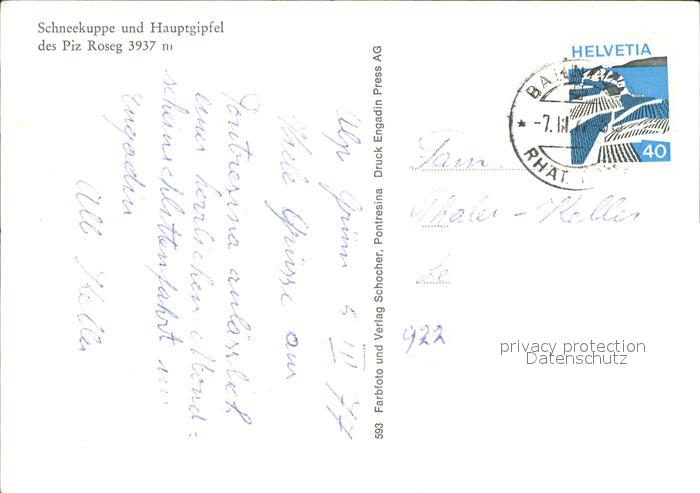 Schneekuppe und Hauptgipfel
des Piz Roseg 3937 m
Alp Grüm 5 III 77
Viele Grüsse aus
Pontresina anlässlich
einer herrlichen Mond-
scheinschlittenfahrt im
Engadin
Alb Keller
593 Farbfoto und Verlag Schocher, Pontresina Druck Engadin Press AG
HELVETIA
40
BAHN
-7.III
RHÄT.
Fam.
Thaler-Keller
922
privacy protection
Datenschutz